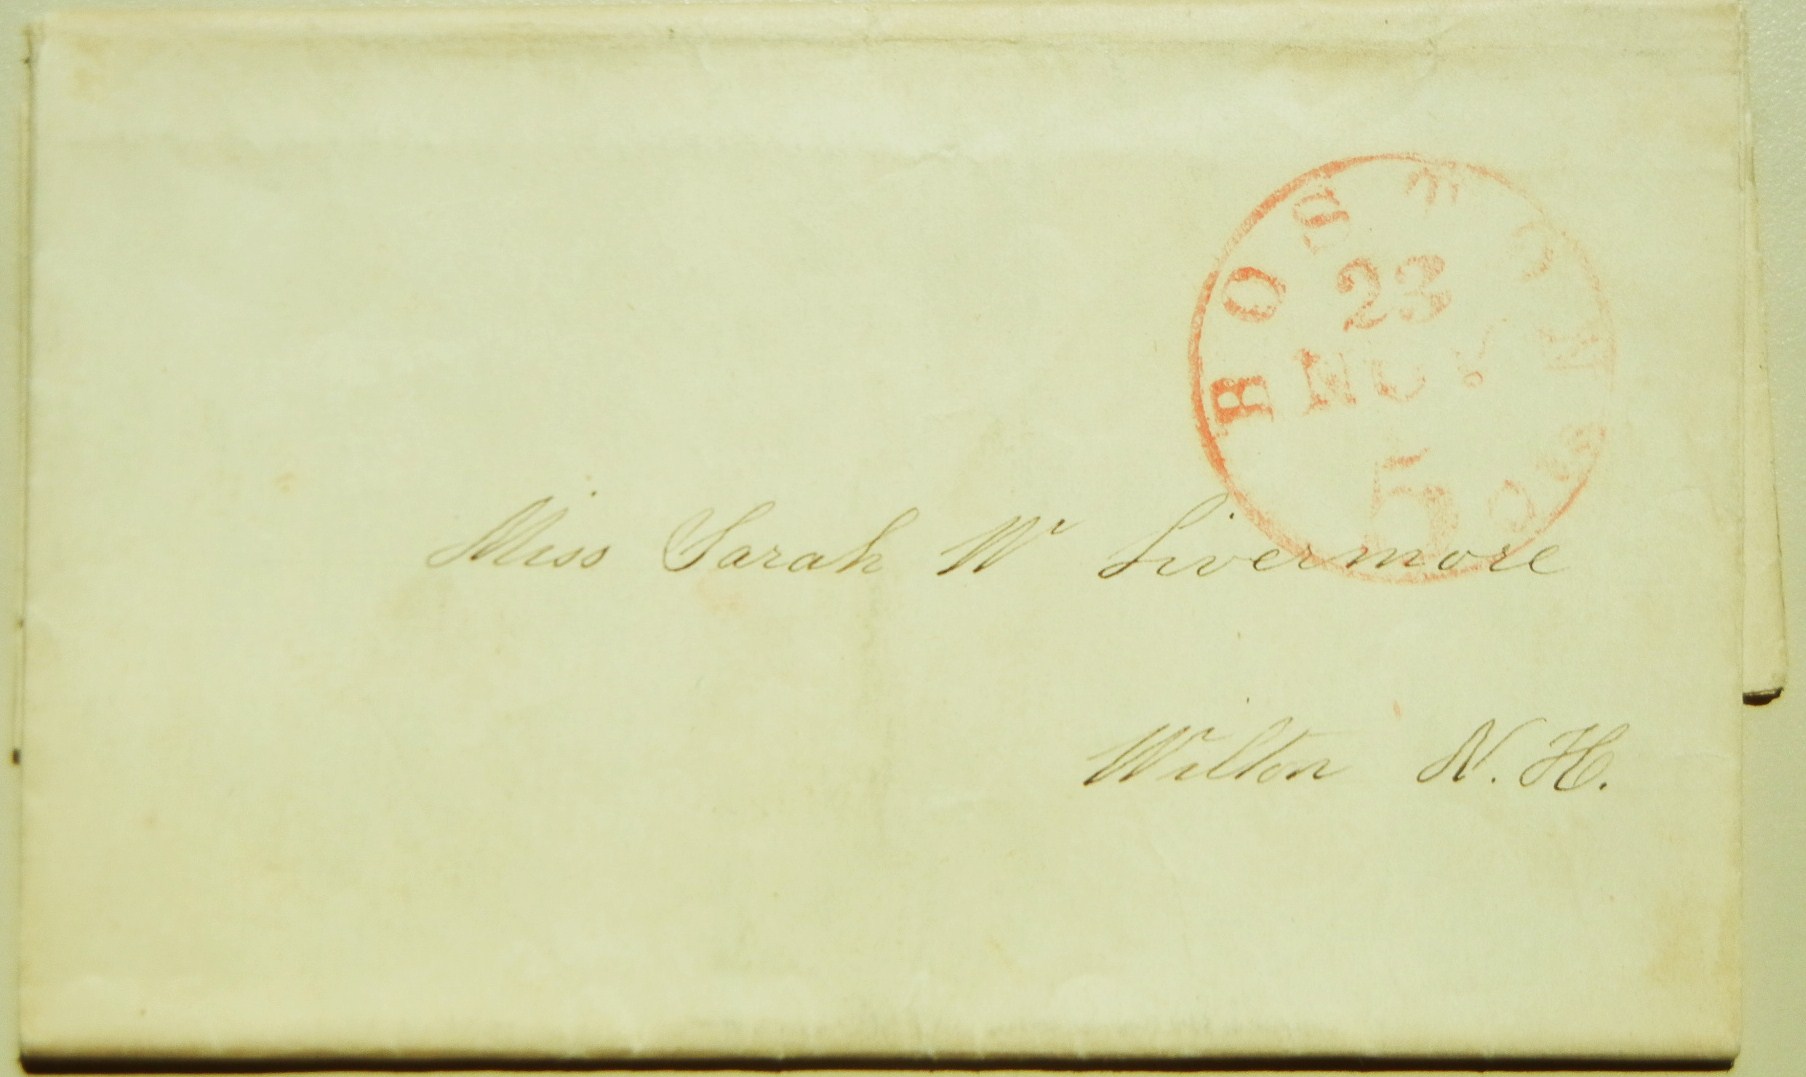 BOSTON
23
NOV
5
Miss Sarah W Livermore
Wilton N. H.